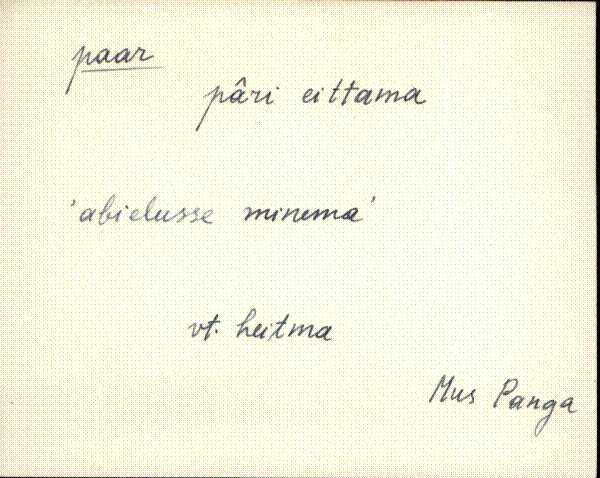 paar
pâri eittama
'abielusse minema'
vt. heitma
Mus Panga